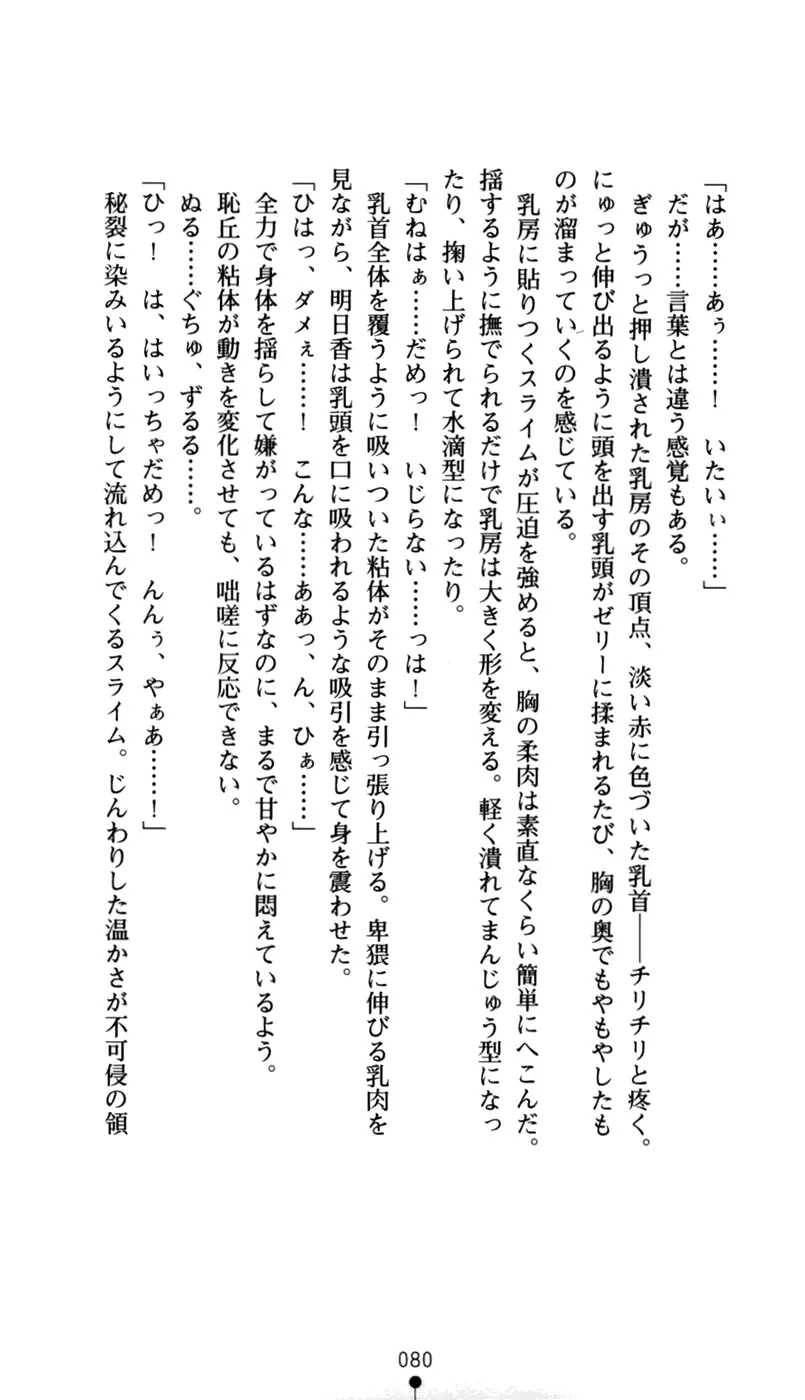 「はあ……あぅ……！　いたいぃ……」
だが……言葉とは違う感覚もある。
ぎゅうっと押し潰された乳房のその頂点、淡い赤に色づいた乳首――チリチリと疼く。
にゅっと伸び出るように頭を出す乳頭がゼリーに揉まれるたび、胸の奥でもやもやしたも
のが溜まっていくのを感じている。
乳房に貼りつくスライムが圧迫を強めると、胸の柔肉は素直なくらい簡単にへこんだ。
揺するように撫でられるだけで乳房は大きく形を変える。軽く潰れてまんじゅう型になっ
たり、掬い上げられて水滴型になったり。
「むねはぁ……だめっ！　いじらない……っは！」
乳首全体を覆うように吸いついた粘体がそのまま引っ張り上げる。卑猥に伸びる乳肉を
見ながら、明日香は乳頭を口に吸われるような吸引を感じて身を震わせた。
「ひはっ、ダメぇ……！　こんな……ああっ、ん、ひぁ……」
全力で身体を揺らして嫌がっているはずなのに、まるで甘やかに悶えているよう。
恥丘の粘体が動きを変化させても、咄嗟に反応できない。
ぬる……ぐちゅ、ずるる……。
「ひっ！　は、はいっちゃだめっ！　んんぅ、やぁあ……！」
秘裂に染みいるようにして流れ込んでくるスライム。じんわりした温かさが不可侵の領
080